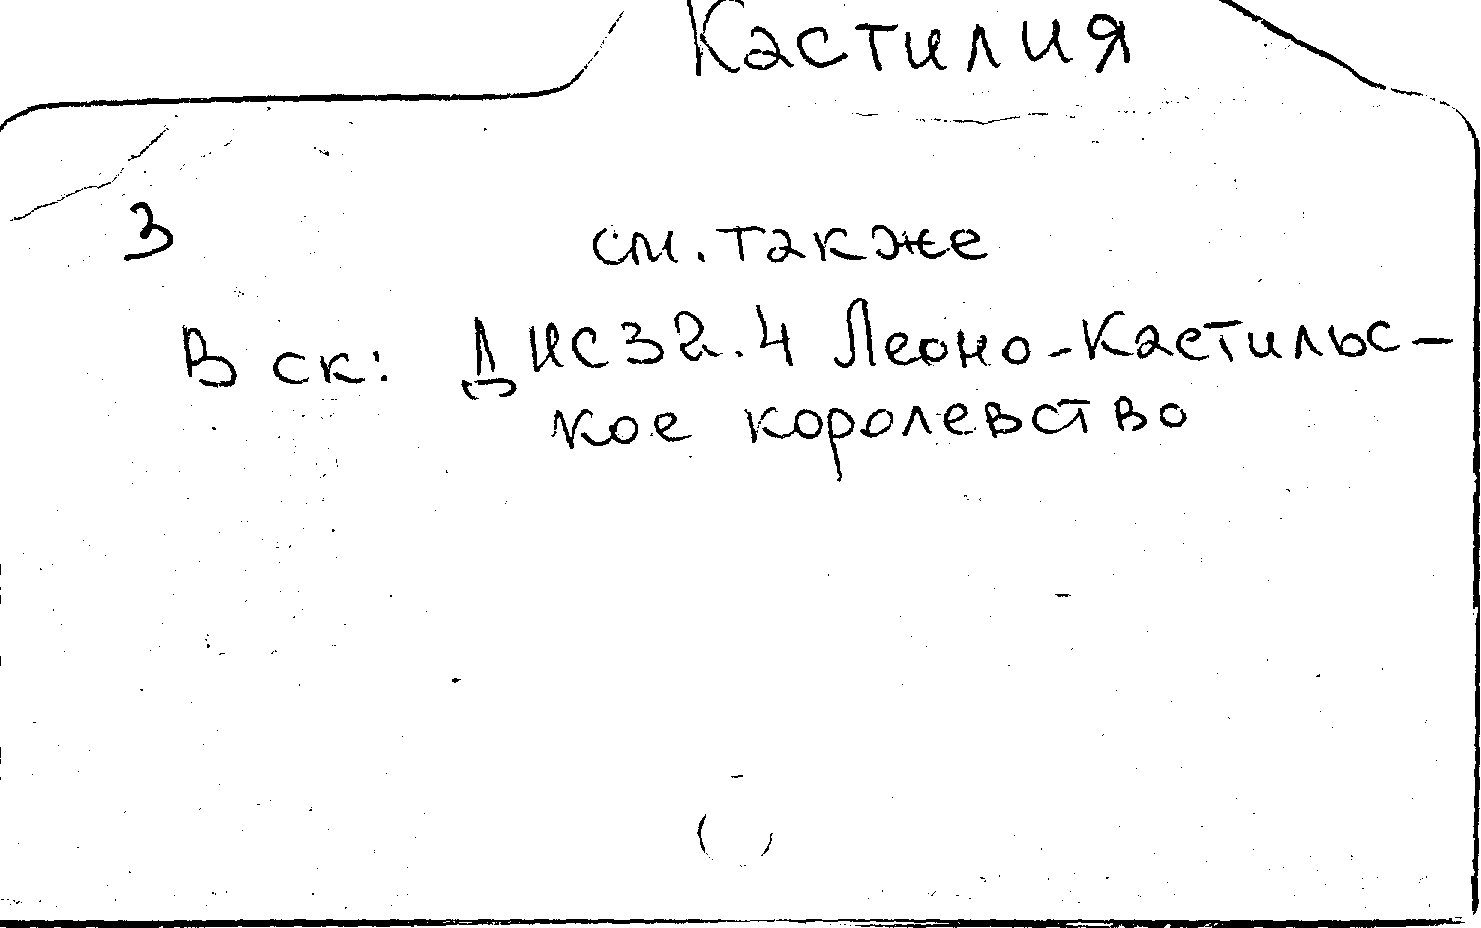 Кастилия
З см. также
В ск: ДИС32.4 Леоно-Кастильс-
кое королевство